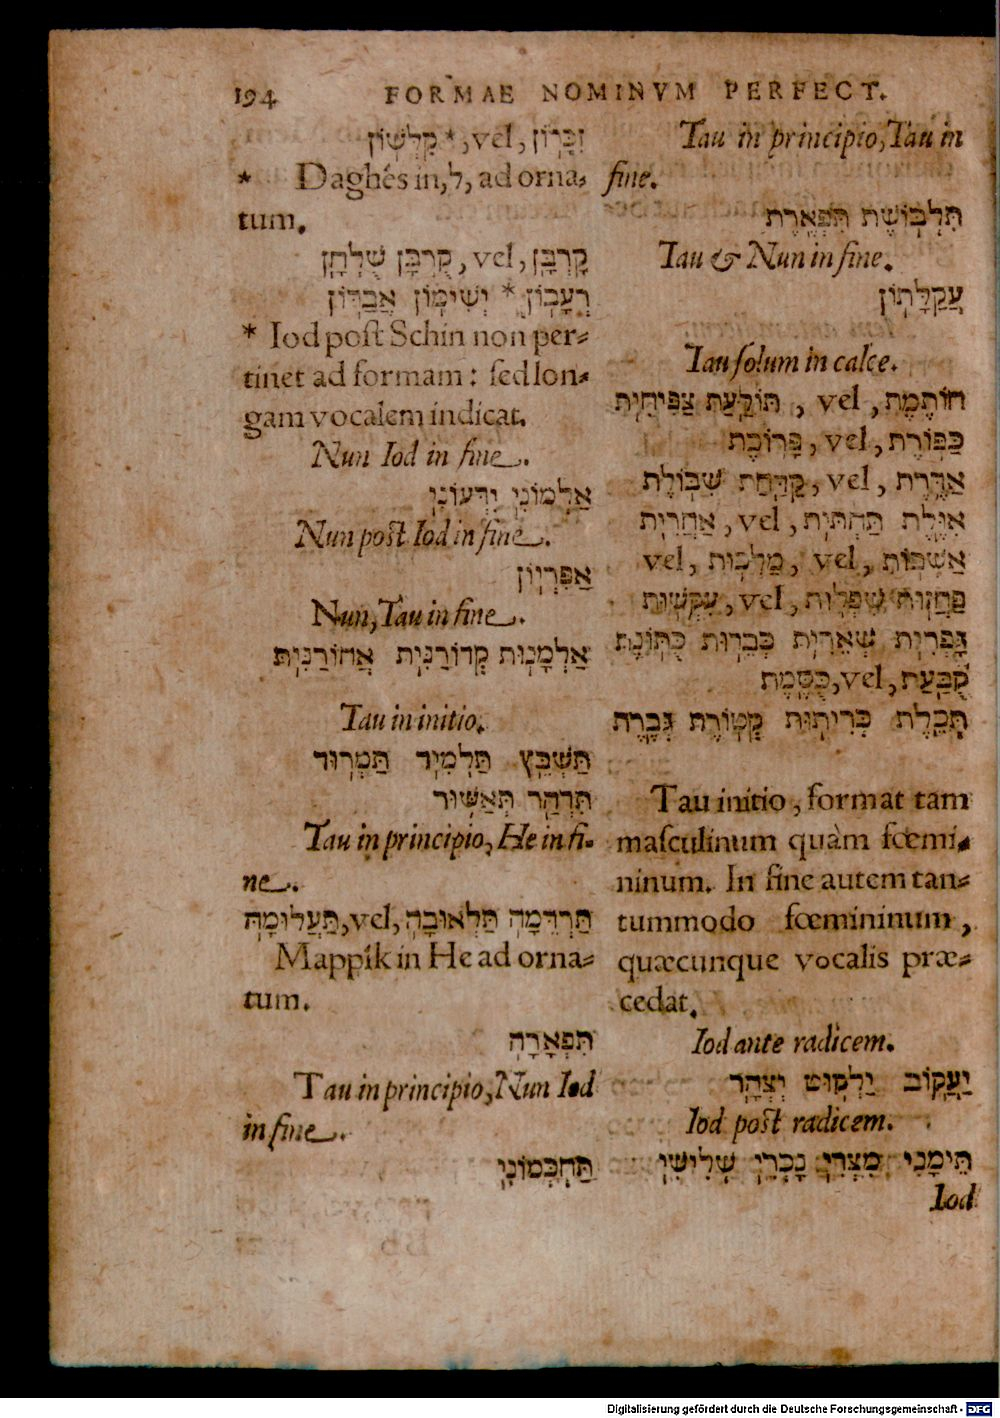 194 FORMAE NOMINVM PERFECT.
זִכָּרוֹן, vel, * קִלְּשׁוֹן
* Daghés in, ל, ad orna-
tum.
קָרְבָּן, vel, קֻרְבָּן שֻׁלְחָן
רְעָבוֹן * יְשִׁימוֹן אֲבַדּוֹן
* Iod post Schin non per-
tinet ad formam: sed lon-
gam vocalem indicat.
Nun Iod in fine.
אַלְמוֹנִי יִדְּעוֹנִי
Nun post Iod in fine.
אַפִּרְיוֹן
Nun, Tau in fine.
אַלְמָנוּת קְדוֹרַנִּית אֲחוֹרַנִּית
Tau in initio.
תַּשְׁבֵּץ תַּלְמִיד תַּמְרוּד
תִּדְהַר תְּאַשּׁוּר
Tau in principio, He in fi-
ne.
תַּרְדֵּמָה תַּלְאוּבָה, vel, תַּעֲלוּמָה
Mappík in He ad orna-
tum.
תִּפְאָרָה
Tau in principio, Nun Iod
in fine.
תַּחְכְּמוֹנִי
Tau in principio, Tau in
fine.
תִּלְבּוֹשֶׁת תִּפְאֶרֶת
Tau & Nun in fine.
עֲקַלָּתוֹן
Tau solum in calce.
חוֹתֶמֶת, vel, תּוֹלַעַת צַפִּיחִית
כַּפּוֹרֶת, vel, פָּרוֹכֶת
אַדֶּרֶת, vel, קַדַּחַת שִׁבּוֹלֶת
אִוֶּלֶת תַּחְתִּית, vel, אַחֲרִית
אַשְׁפּוֹת, vel, מַלְכוּת, vel
פַּחֲזוּת שִׁפְלוּת, vel, עִקְּשׁוּת
גָּפְרִית שְׁאֵרִית כְּבֵדוּת כֻּתּוֹנֶת
קֻבַּעַת, vel, כֻּסֶּמֶת
תְּכֵלֶת כְּרִיתוּת קְטוֹרֶת גְּבֶרֶת
Tau initio, format tam
masculinum quàm fœmi-
ninum. In fine autem tan-
tummodo fœmininum,
quæcunque vocalis præ-
cedat.
Iod ante radicem.
יַעֲקוֹב יַלְקוּט יִצְהָר
Iod post radicem.
תֵּימָנִי מִצְרִי נָכְרִי שְׁלִישִׁי
Iod
Digitalisierung gefördert durch die Deutsche Forschungsgemeinschaft - DFG